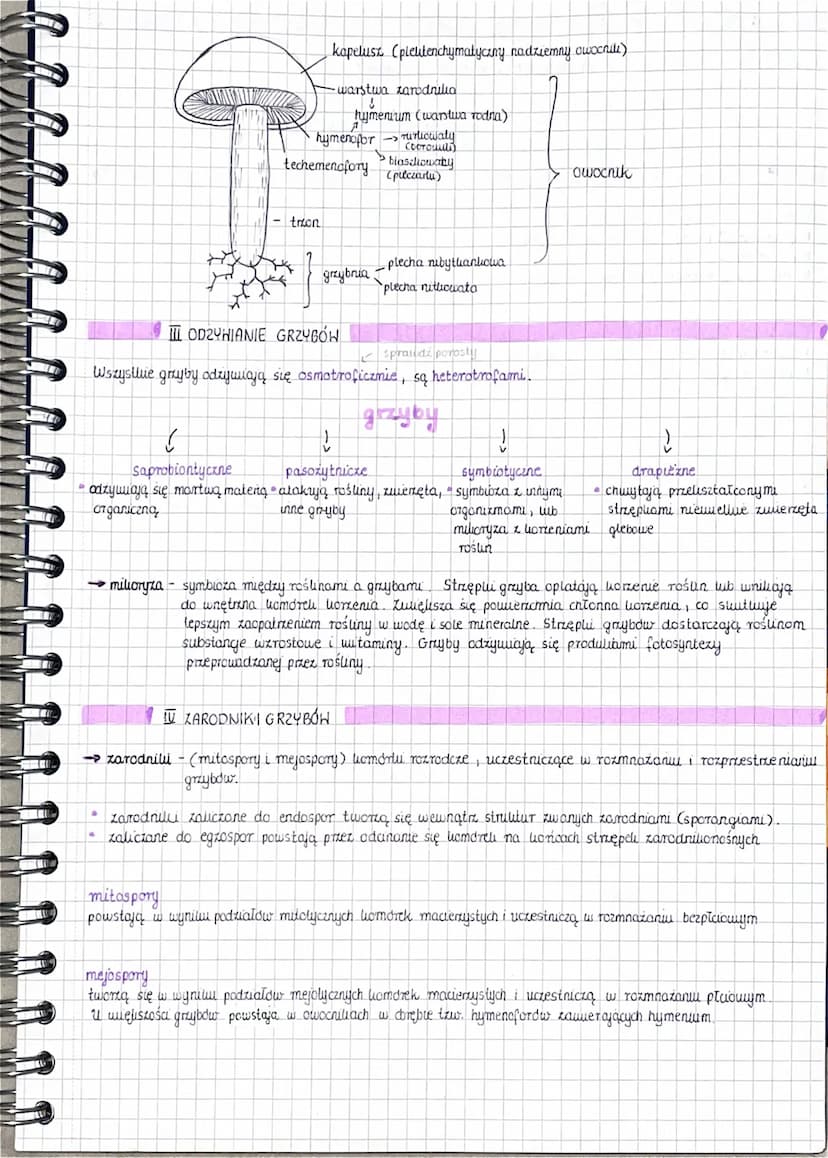 kapelusz (plektenchymatyczny nadziemny owocnik)
warstwa zarodnika
hymenium (warstwa rodna)
hymenofor → rurkowaty
(borowik)
blaszkowaty
(pieczarki)
techemenofory
owocnik
trzon
grzybnia
plecha nibytkankowa
plecha nitkowata
III ODŻYWIANIE GRZYBÓW
sprawdź porosty
Wszystkie grzyby odżywiają się osmotroficznie, są heterotrofami.
grzyby
saprobiontyczne pasożytnicze symbiotyczne drapieżne
• odżywiają się martwą materią • atakują rośliny, zwierzęta, • symbioza z innymi • chwytają przekształconymi
organiczną inne grzyby organizmami, lub strzępkami niewielkie zwierzęta
mikoryza z korzeniami glebowe
roślin
→ mikoryza - symbioza między roślinami a grzybami. Strzępki grzyba oplatają korzenie roślin lub wnikają
do wnętrza komórek korzenia. Zwiększa się powierzchnia chłonna korzenia, co skutkuje
lepszym zaopatrzeniem rośliny w wodę i sole mineralne. Strzępki grzybów dostarczają roślinom
substancje wzrostowe i witaminy. Grzyby odżywiają się produktami fotosyntezy
przeprowadzanej przez rośliny.
IV ZARODNIKI GRZYBÓW
→ zarodniki - (mitospory i mejospory) komórki rozrodcze, uczestniczące w rozmnażaniu i rozprzestrzenianiu
grzybów.
• zarodniki zaliczane do endospor tworzą się wewnątrz struktur zwanych zarodniami (sporangiami).
• zaliczane do egzospor powstają przez odcinanie się komórek na końcach strzępek zarodnikonośnych
mitospory
powstają w wyniku podziałów mitotycznych komórek macierzystych i uczestniczą w rozmnażaniu bezpłciowym
mejospory
tworzą się w wyniku podziałów mejotycznych komórek macierzystych i uczestniczą w rozmnażaniu płciowym.
U większości grzybów powstają w owocnikach w obrębie tzw. hymenoforów zawierających hymenium.